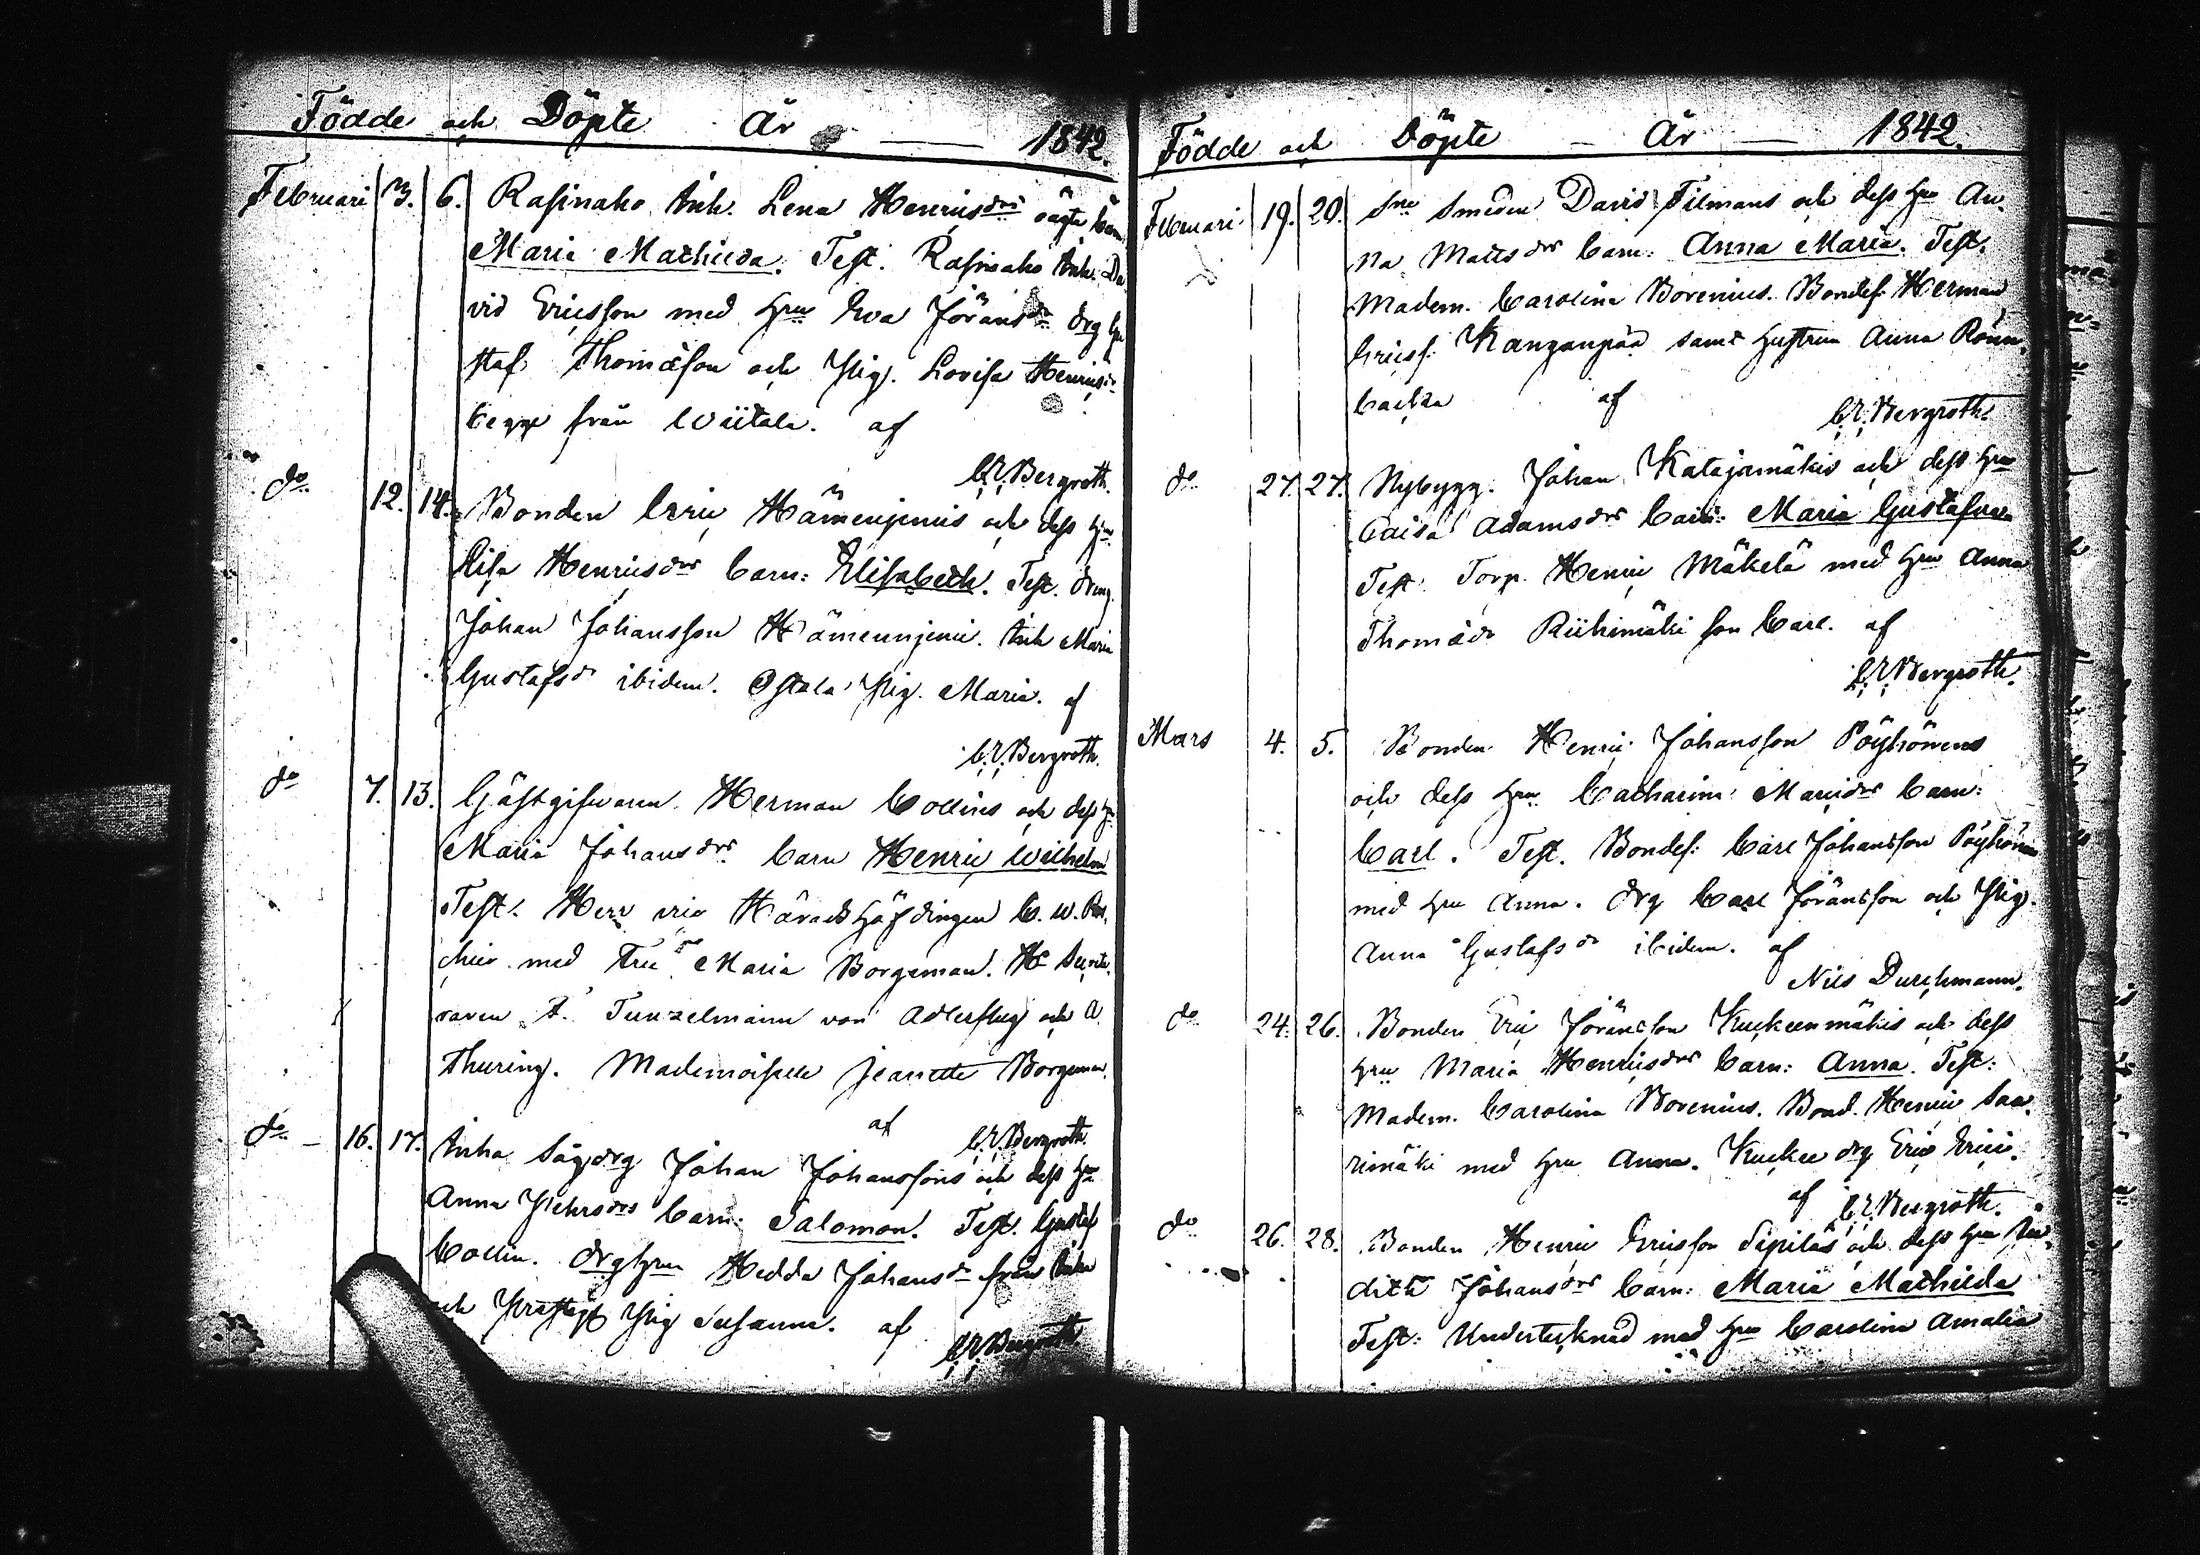 Födde och Döpte År 1842.
Februari 3. 6. Rasinaho Inh. Lena Henricsdrs oägta barn
Maria Mathilda. Test. Rasinaho Inh. Da
vid Ericsson med Hru Eva Göransdr drg Gu
staf Thomasson och Pig. Lovisa Henricsdr
begge från Wiitala. af
C.E. Bergroth.
do 12. 14. Bonden Eric Hämeenjemis och dess Hru
Lisa Henricsdrs barn: Elisabeth. Test. Dreng.
Johan Johansson Hämeenjemi. Inh Maria
Gustafsd ibidem. Ojtala Pig. Maria. af
C.E. Bergroth.
do 7. 13. Gästgifvaren Herman Collins och dess Hr
Maria Johansdrs barn Henric Wilhelm
Test. Herr vice Häradshöfdingen C. W.
med Fru Maria Borgeman. Hr
A. Tunzelmann von Adlerflug och A.
Thuring. Mademoiselle Jeanette Borgeman.
af C.E. Bergroth.
do 16. 17. Inha Sågdrg Johan Johanssons och dess Hru
Anna Pehrsdrs barn: Salomon. Test. Gustaf
Collin. drg Hru Hedda Johansdr från Inha
och Pig Susanna. af
C.E. Bergroth
Födde och Döpte År 1842.
Februari 19. 20. Smeden David Filmans och dess Hru An
na Mattsdrs barn: Anna Maria. Test.
Madem. Carolina Borenius. Bondes. Herman
Ericss. Kanganpää samt Hustrun Anna Rönn
backa af
C.E. Bergroth.
do 27. 27. Nybygg. Johan Katajamäkis och dess Hru
Caisa Adamsdrs barn: Maria Gustafva
Test. Torp. Henric Mäkelä med Hru Anna
Thomasdr Riihimäki son Carl. af
C.E. Bergroth.
Mars 4. 5. Bonden Henric Johansson Pöyhönens
och dess Hru Catharina Maricdrs barn:
Carl. Test. Bondes: Carl Johansson Pöyhönen
med Hru Anna. Drg Carl Göransson och Pig.
Anna Gustafsdr ibidem. af
Nils Durchmann.
do 24. 26. Bonden Eric Göransson Kuckeenmäkis och dess
Hru Maria Henricsdrs barn: Anna. Test:
Madem. Carolina Borenius. Bond. Henric Saa
rimäki med Hru Anna. Kuckee drg Eric Ericss.
af C.E. Bergroth.
do 26. 28. Bonden Henric Ericsson Sipiläs och dess Hru Ju
dith Johansdrs barn: Maria Mathilda
Test: Undertecknad med Hru Carolina Amalia